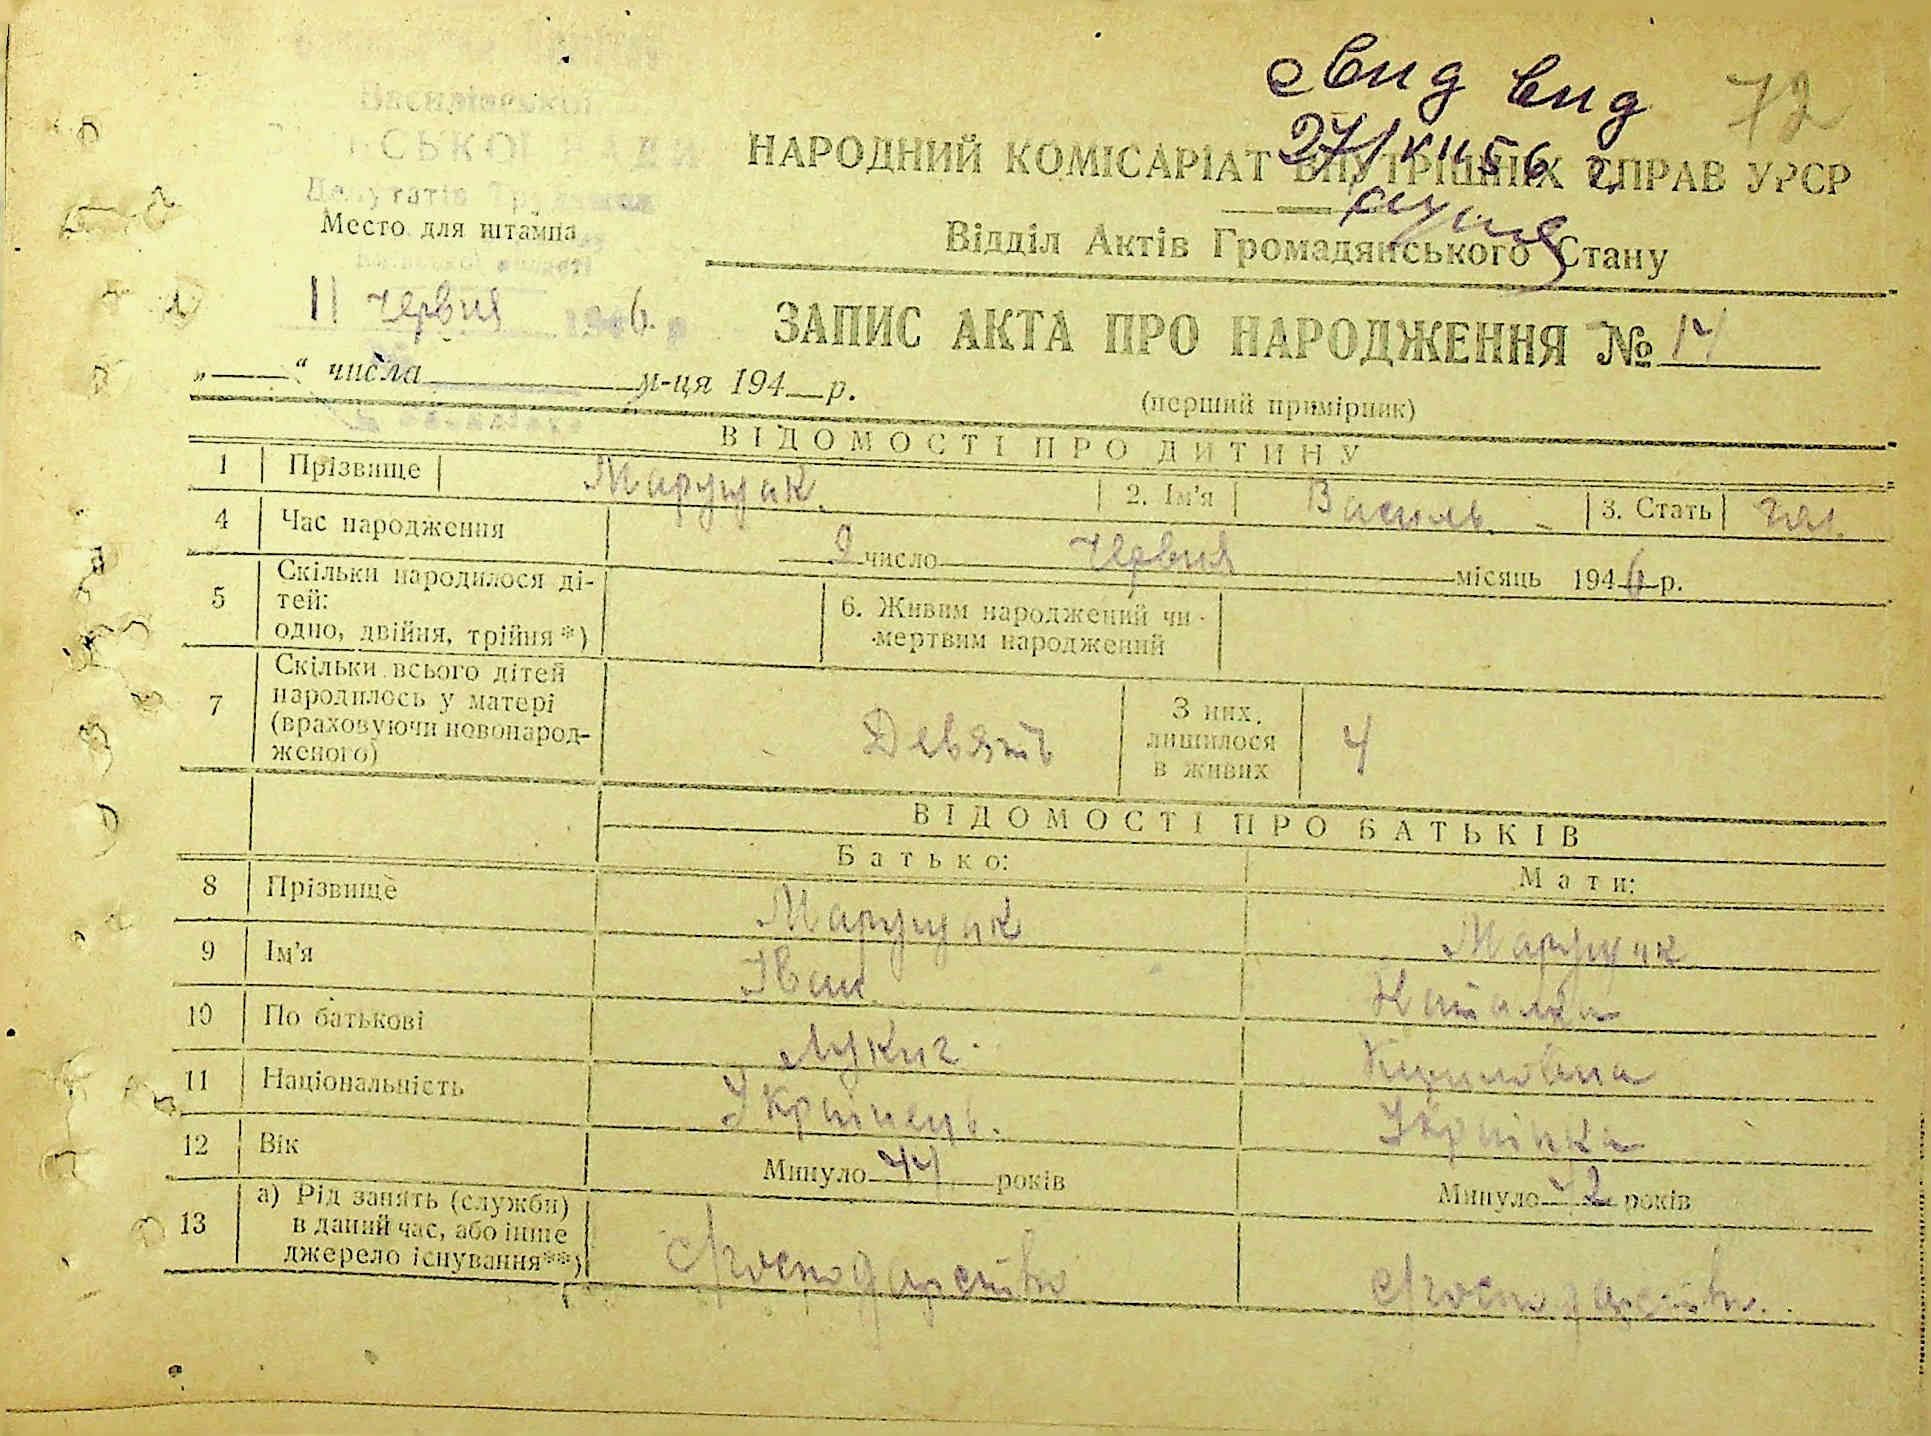 Свид вид
72
27/XII 56 г.
Василівської
СЬКОЇ
Депутатів Трудящих
НАРОДНИЙ КОМІСАРІАТ ВНУТРІШНІХ СПРАВ УРСР
Место для штампа
Відділ Актів Громадянського Стану
11 червня 1946 р
ЗАПИС АКТА ПРО НАРОДЖЕННЯ № 14
„ “ числа м-ця 194 р.
(перший примірник)
ВІДОМОСТІ ПРО ДИТИНУ
1 Прізвище Марущак. 2. Ім'я Василь 3. Стать чл.
4 Час народження 9 число червня місяць 1946 р.
5 Скільки народилося ді-
тей:
одно, двійня, трійня*)
6. Живим народжений чи
мертвим народжений
7 Скільки всього дітей
народилось у матері
(враховуючи новонарод-
женого)
Девять
З них
лишилося
в живих
4
ВІДОМОСТІ ПРО БАТЬКІВ
Батько: Мати:
8 Прізвище Марущак Марущак
9 Ім'я Іван Наталка
10 По батькові Лукич. Кирилівна
11 Національність Українець. Українка
12 Вік Минуло 44 років Минуло 42 років
13 а) Рід занять (служби)
в даний час, або інше
джерело існування**)
Господарство Господарство.